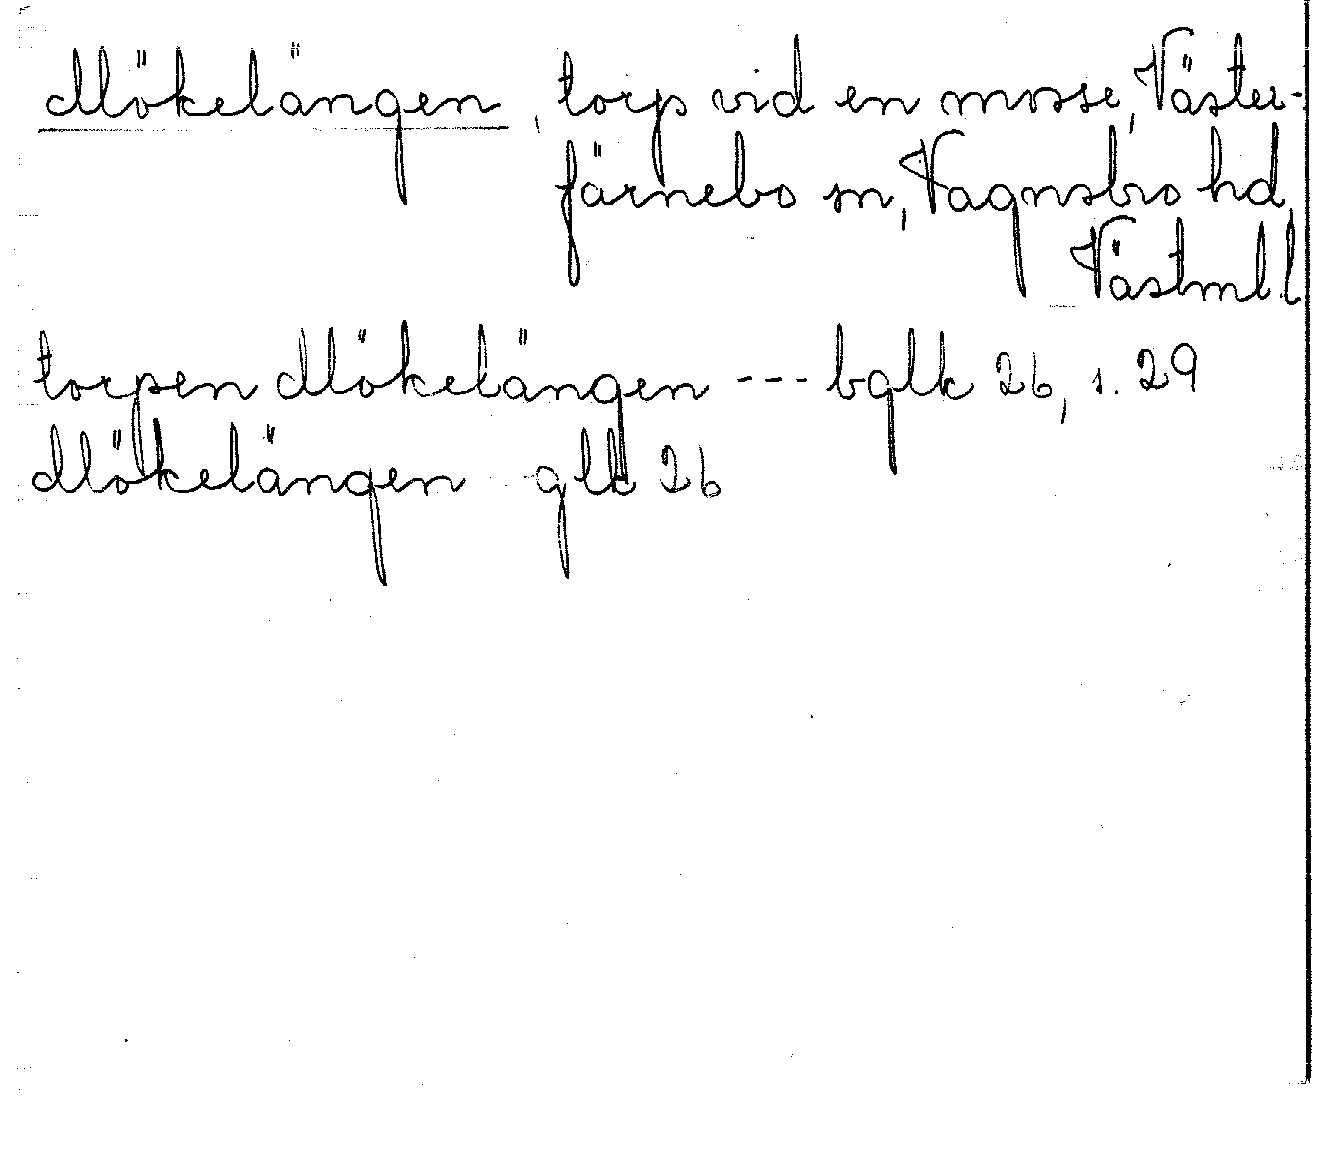 Mökelängen, torp vid en mosse, Väster-
färnebo sn, Vagnsbro hd,
Västml l
torpen Mökelängen --- bglk 26, s. 29
Mökelängen glk 26